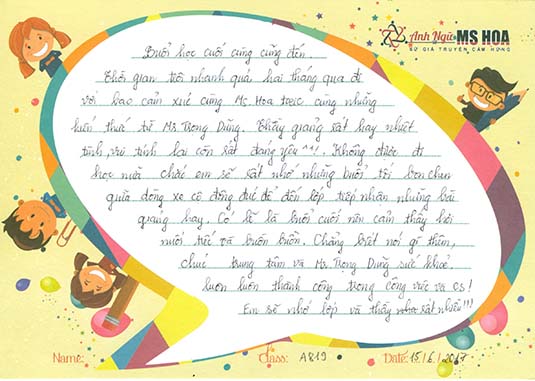 Anh Ngữ MS HOA
SỨ GIẢ TRUYỀN CẢM HỨNG
Buổi học cuối cùng cũng đến
Thời gian trôi nhanh quá, hai tháng qua đi
với bao cảm xúc cùng Ms. Hoa toeic cùng những
kiến thức từ Mr. Trọng Dũng. Thầy giảng rất hay nhiệt
tình, vui tính lại còn rất đáng yêu ^^!. Không được đi
học nữa chắc em sẽ rất nhớ những buổi tối bon chen
giữa dòng xe cộ đông đúc để đến lớp tiếp nhận những bài
giảng hay. Có lẽ là buổi cuối nên cảm thấy hơi
nuối tiếc và buồn buồn. Chẳng biết nói gì thêm,
chúc trung tâm và Mr. Trọng Dũng sức khoẻ,
luôn luôn thành công trong công việc và cs!
Em sẽ nhớ lớp và thầy rất nhiều!!!
Name: Class: A819 Date: 15/6/2017